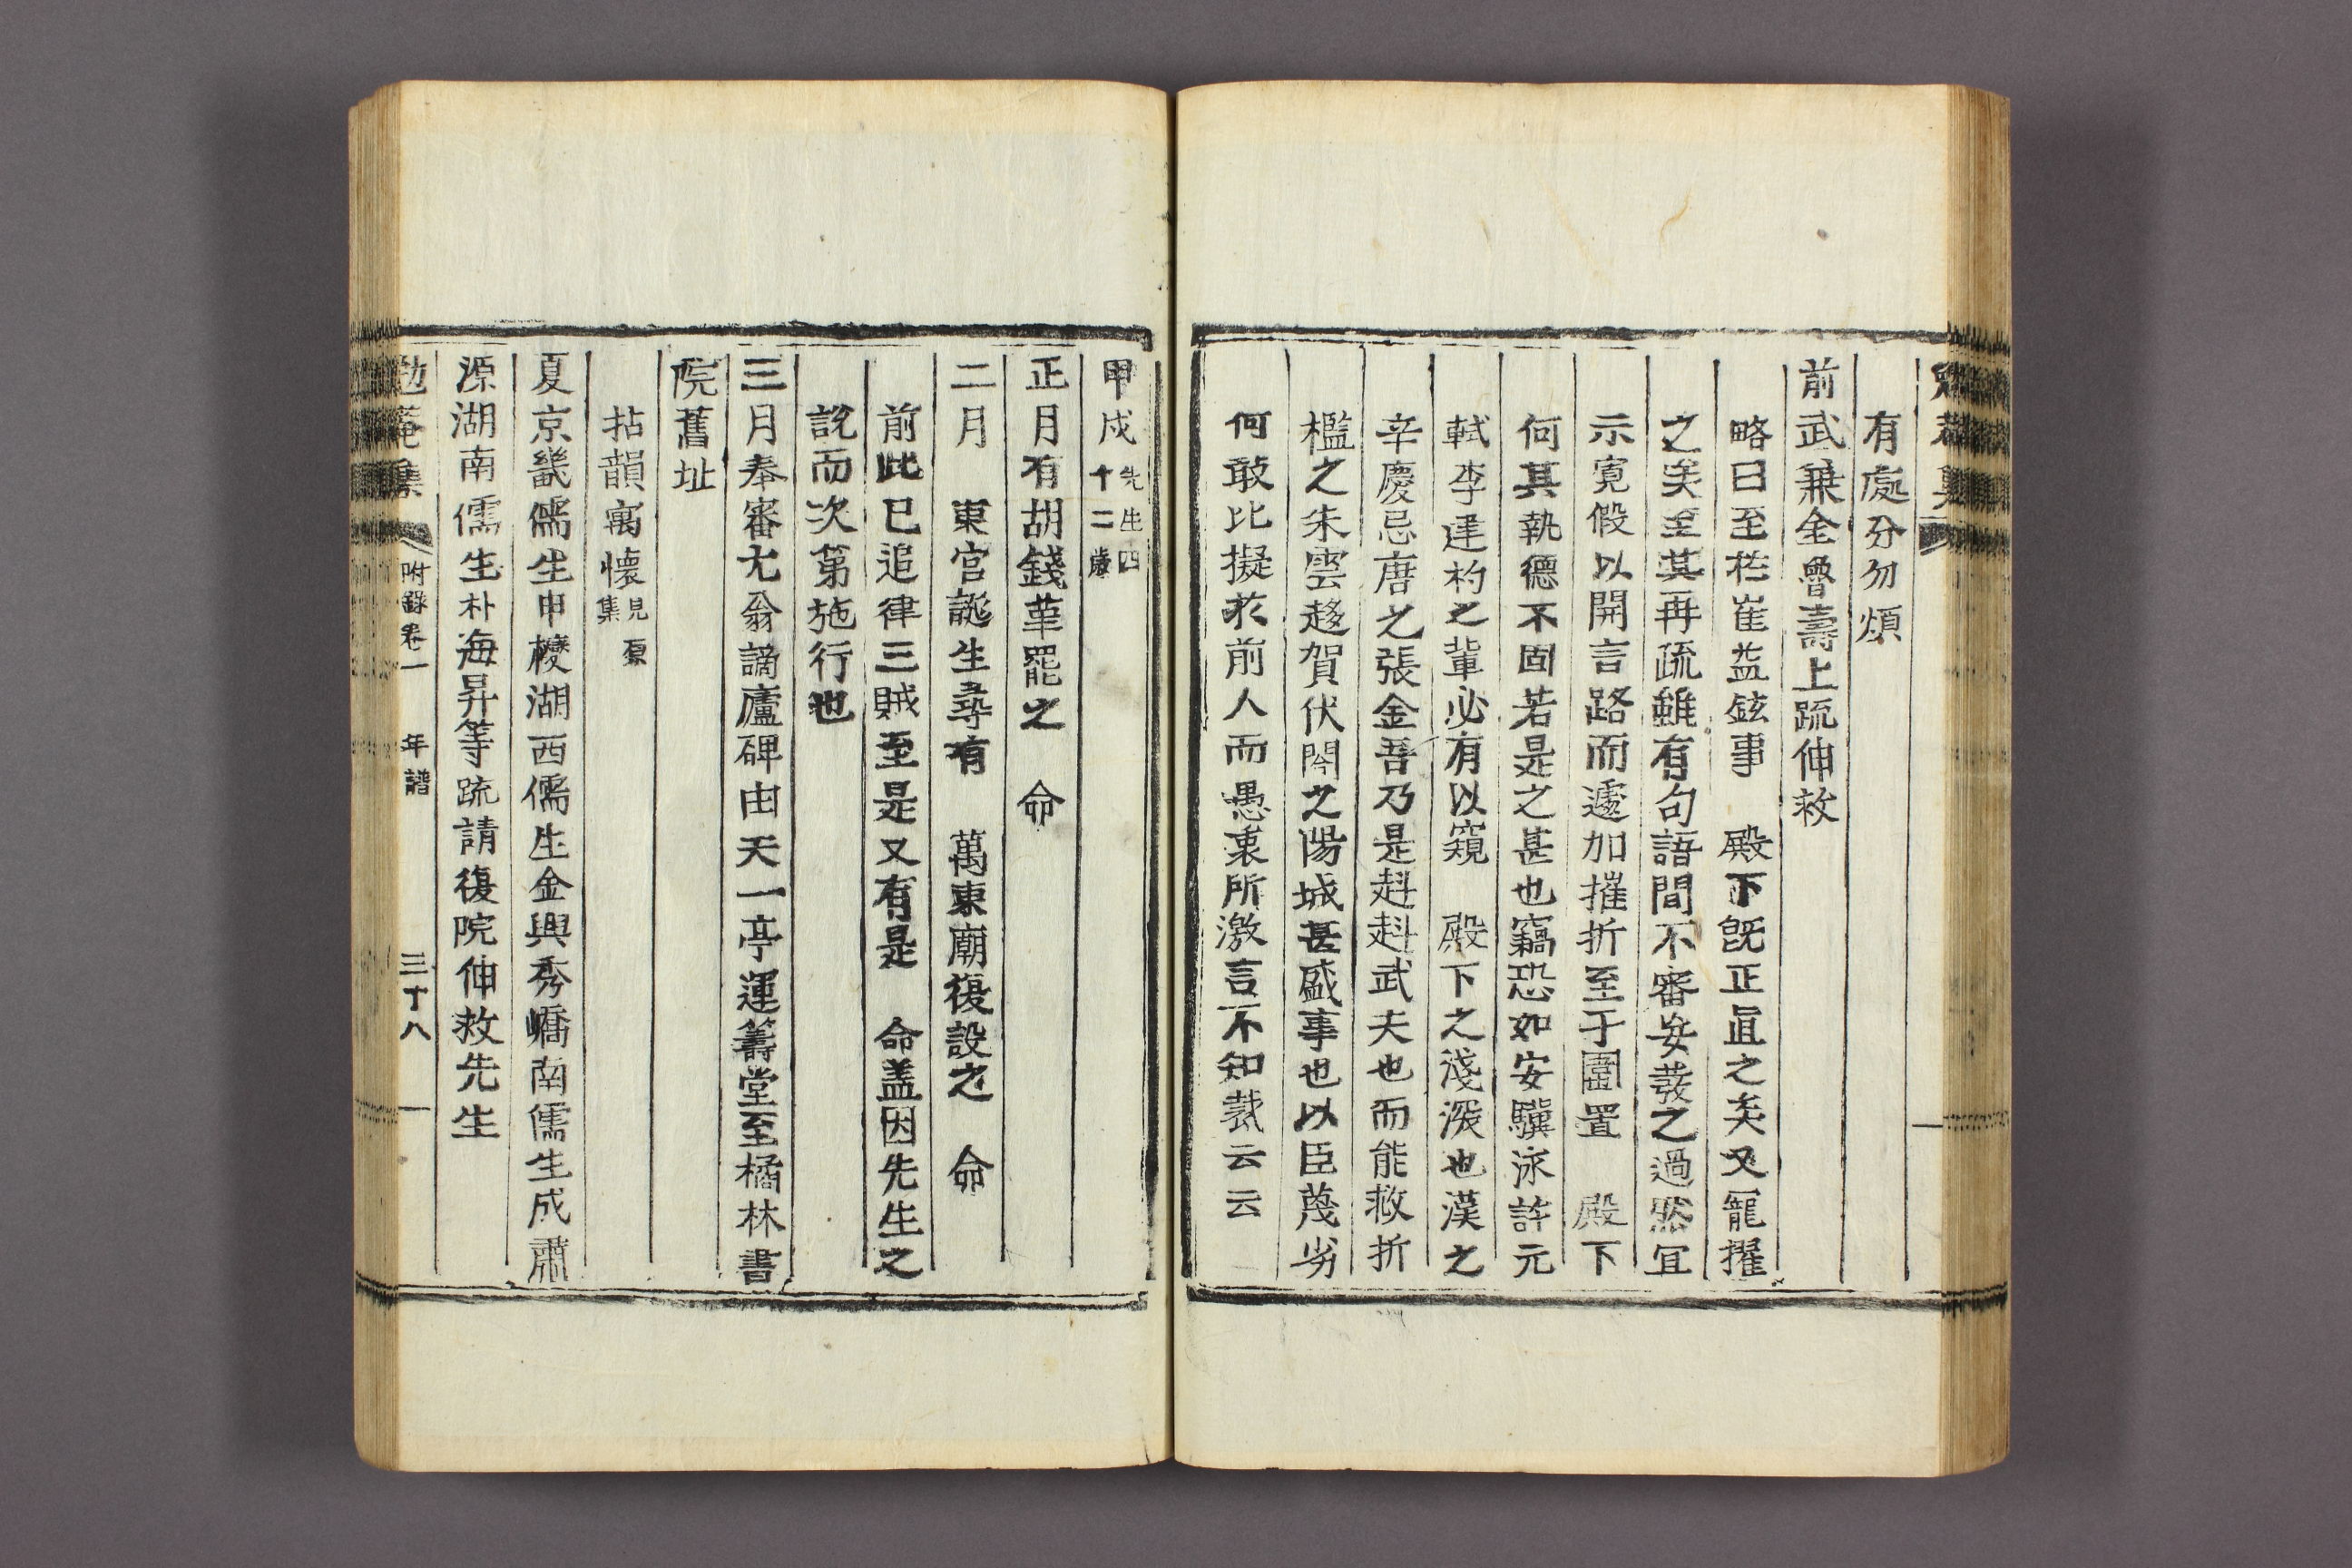 有處分勿煩
前武兼金魯壽上疏伸救
略曰至於崔益鉉事　殿下旣正眞之矣又寵擢
之矣至其再疏雖有句語間不審妄發之過然宜
示寬假以開言路而遽加摧折至于圍置　殿下
何其執德不固若是之甚也竊恐如安驥泳許元
軾李建杓之輩必有以窺　殿下之淺深也漢之
辛慶忌唐之張金吾乃是赳赳武夫也而能救折
檻之朱雲趍賀伏閤之陽城甚盛事也以臣蔑劣
何敢比擬於前人而愚衷所激言不知裁云云
甲戌先生四十二歲
正月有胡錢革罷之　命
二月　東宮誕生尋有　萬東廟復設之　命
前此已追律三賊至是又有是　命盖因先生之
說而次第施行也
三月奉審尤翁謫廬碑由天一亭運籌堂至橘林書
院舊址
拈韻寓懷見原集
夏京畿儒生申㰇湖西儒生金興秀嶠南儒生成肅
源湖南儒生朴海昇等疏請復院伸救先生
勉菴集　附錄卷一　年譜　三十八